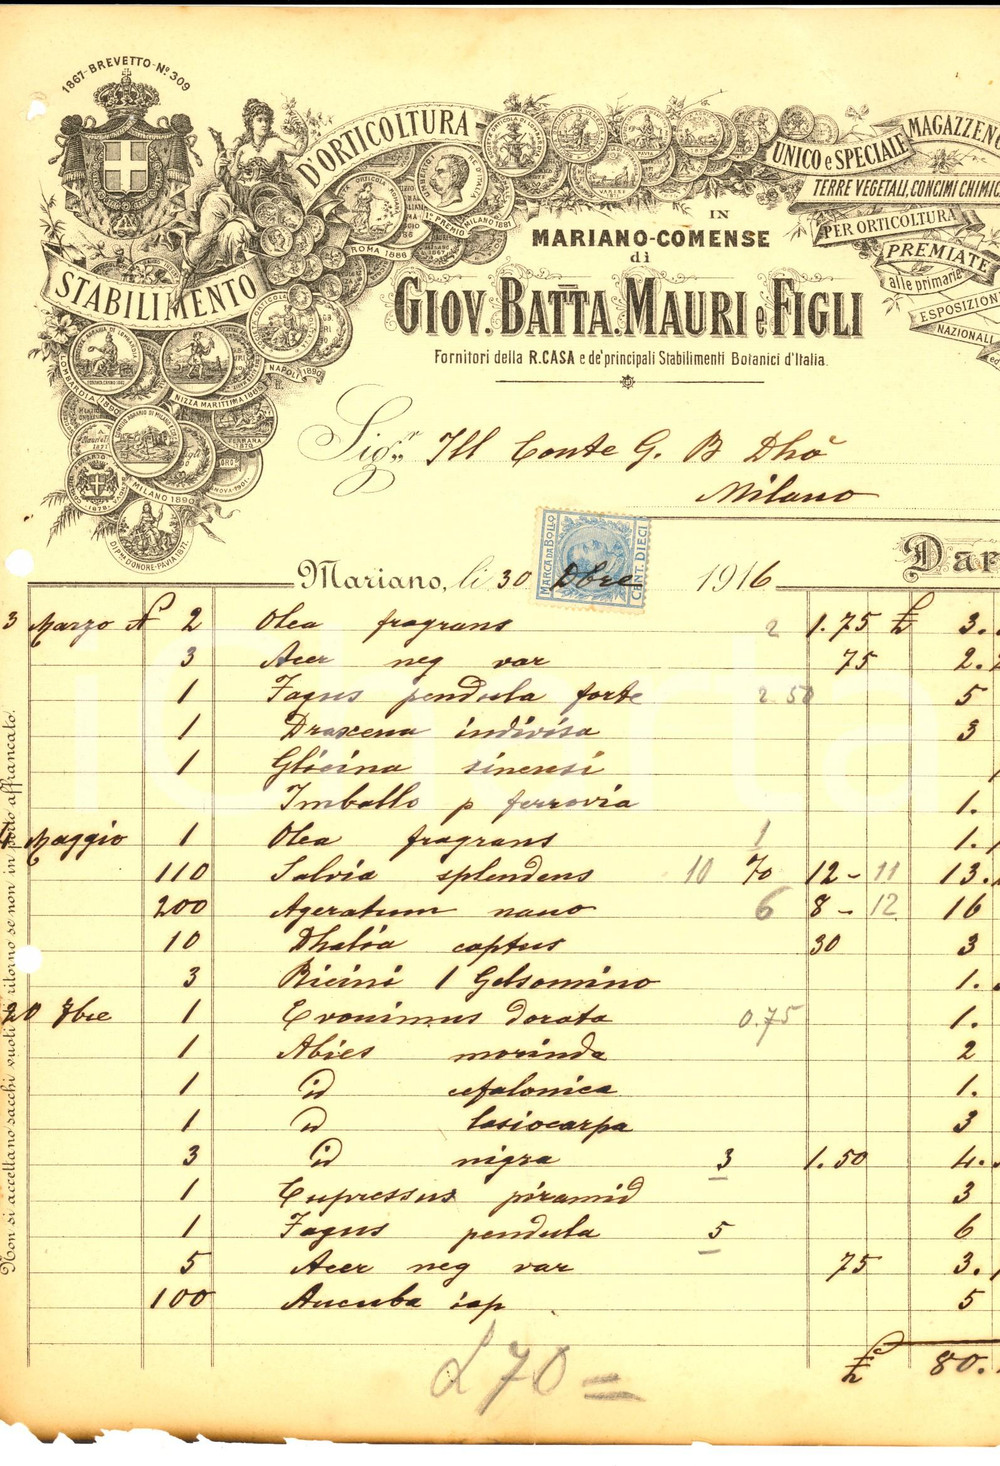 1867-BREVETTO-No 309
STABILIMENTO D'ORTICOLTURA
UNICO e SPECIALE MAGAZZENO
TERRE VEGETALI, CONCIMI CHIMIC
PER ORTICOLTURA
PREMIATE
alle primarie
ESPOSIZION
NAZIONALI
ed
1° PREMIO MILANO 1881
ROMA 1886
NAPOLI 1890
NIZZA MARITTIMA 1883
LOMBARDIA 1880
MILANO 1890
IN
MARIANO-COMENSE
di
GIOV. BATTA. MAURI e FIGLI
Fornitori della R. CASA e de' principali Stabilimenti Botanici d'Italia.
Sigr. Ill Conte G. B Dho
Milano
MARCA DA BOLLO
CENT. DIECI
DAR
Mariano, li 30 Dbre 1916
3 Marzo N 2 Olea fragrans 2 1.75 £ 3.
3 Acer neg var 75 2.
1 Fagus pendula forte 2.50 5
1 Draxena indivisa 3
1 Glicina sinensi
Imballo p ferrovia 1.
Maggio 1 Olea fragrans 1 1.
110 Salvia splendens 10 % 12 - 11 13.
200 Ageratum nano 6 8 - 12 16
10 Dhalia captus 30 3
3 Ricini 1 Gelsomino 1.
20 Xbre 1 Evonimus dorata 0.75 1.
1 Abies morinda 2
1 id cefalonica 1.
1 id lasiocarpa 3
3 id nigra 3 1.50 4.
1 Cupressus piramid 3
1 Fagus pendula 5 6
5 Acer neg var 75 3.
100 Aucuba iap 5
£ 80.
£ 70 =
Non si accettano sacchi vuoti di ritorno se non in porto affrancato.